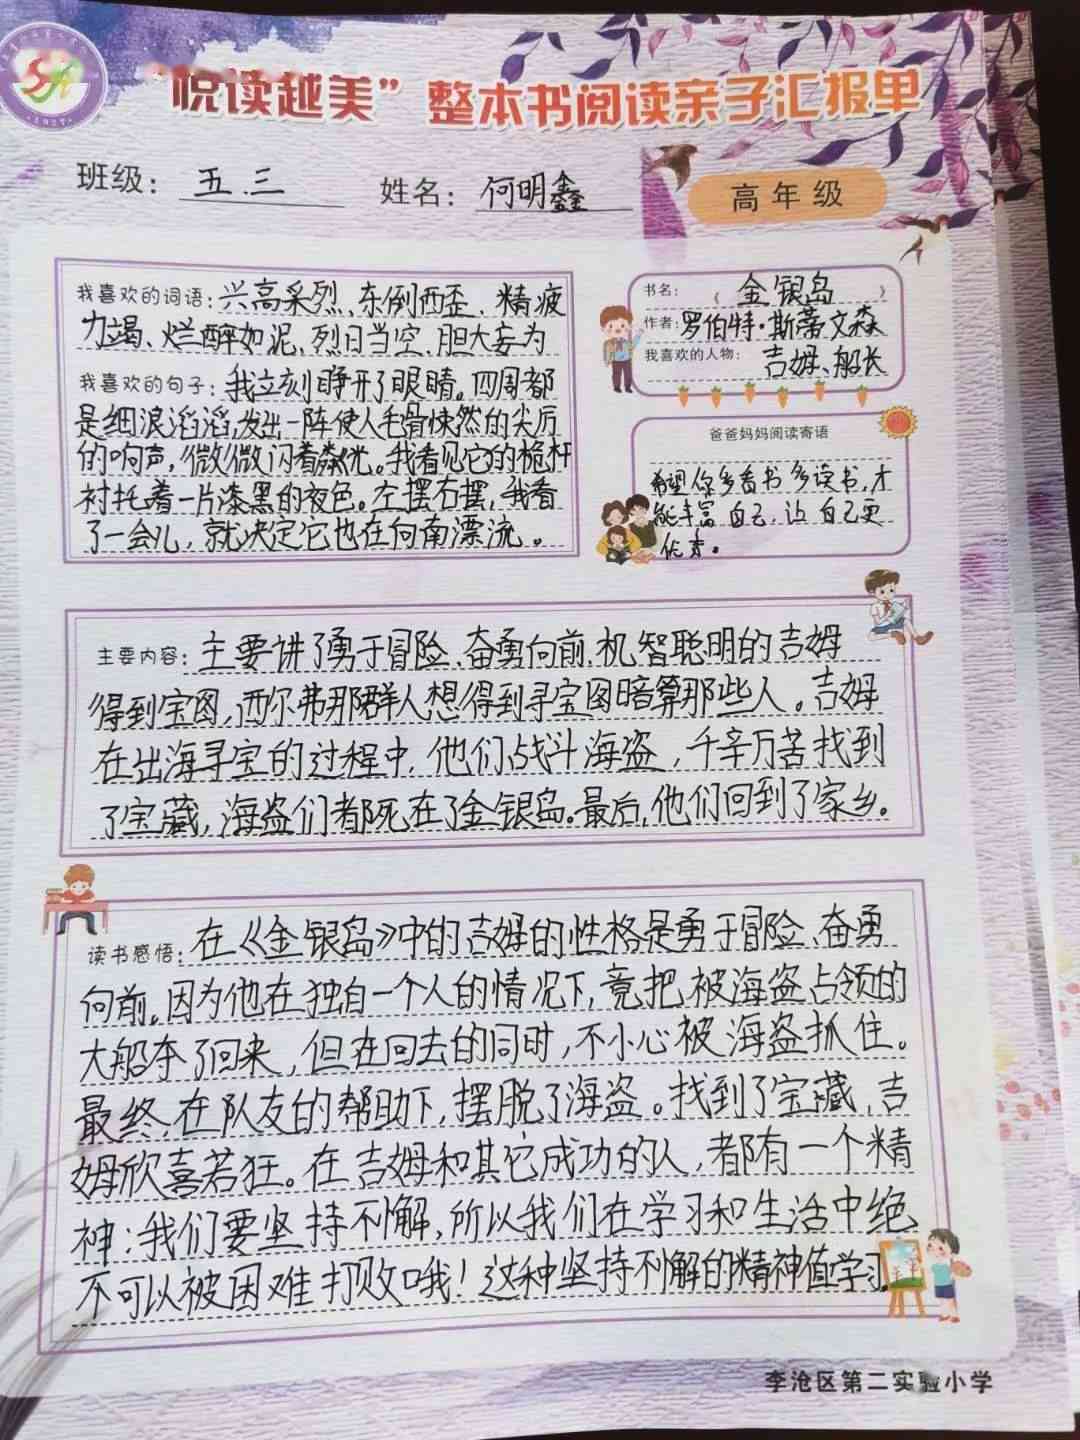 “悦读越美”整本书阅读亲子汇报单
班级：五.三 姓名：何明鑫
高年级
我喜欢的词语：兴高采烈、东倒西歪、精疲
力竭、烂醉如泥、烈日当空、胆大妄为
我喜欢的句子：我立刻睁开了眼睛。四周都
是细浪滔滔,发出一阵使人毛骨悚然的尖厉
的响声,微微闪着粼光。我看见它的桅杆
衬托着一片漆黑的夜色。左摆右摆,我看
了一会儿,就决定它也在向南漂流。
书名：《金银岛》
作者：罗伯特·斯蒂文森
我喜欢的人物：吉姆、船长
爸爸妈妈阅读寄语
希望你多看书多读书,才
能丰富自己,让自己更
优秀。
主要内容：主要讲了勇于冒险、奋勇向前、机智聪明的吉姆
得到宝图,西尔弗那群人想得到寻宝图暗算那些人。吉姆
在出海寻宝的过程中,他们战斗海盗,千辛万苦找到
了宝藏,海盗们都死在了金银岛。最后,他们回到了家乡。
读书感悟：在《金银岛》中的吉姆的性格是勇于冒险、奋勇
向前。因为他在独自一个人的情况下,竟把被海盗占领的
大船夺了回来,但在回去的同时,不小心被海盗抓住。
最终,在队友的帮助下,摆脱了海盗。找到了宝藏,吉
姆欣喜若狂。在吉姆和其它成功的人,都有一个精
神：我们要坚持不懈,所以我们在学习和生活中绝
不可以被困难打败哦！这种坚持不懈的精神值学习
李沧区第二实验小学